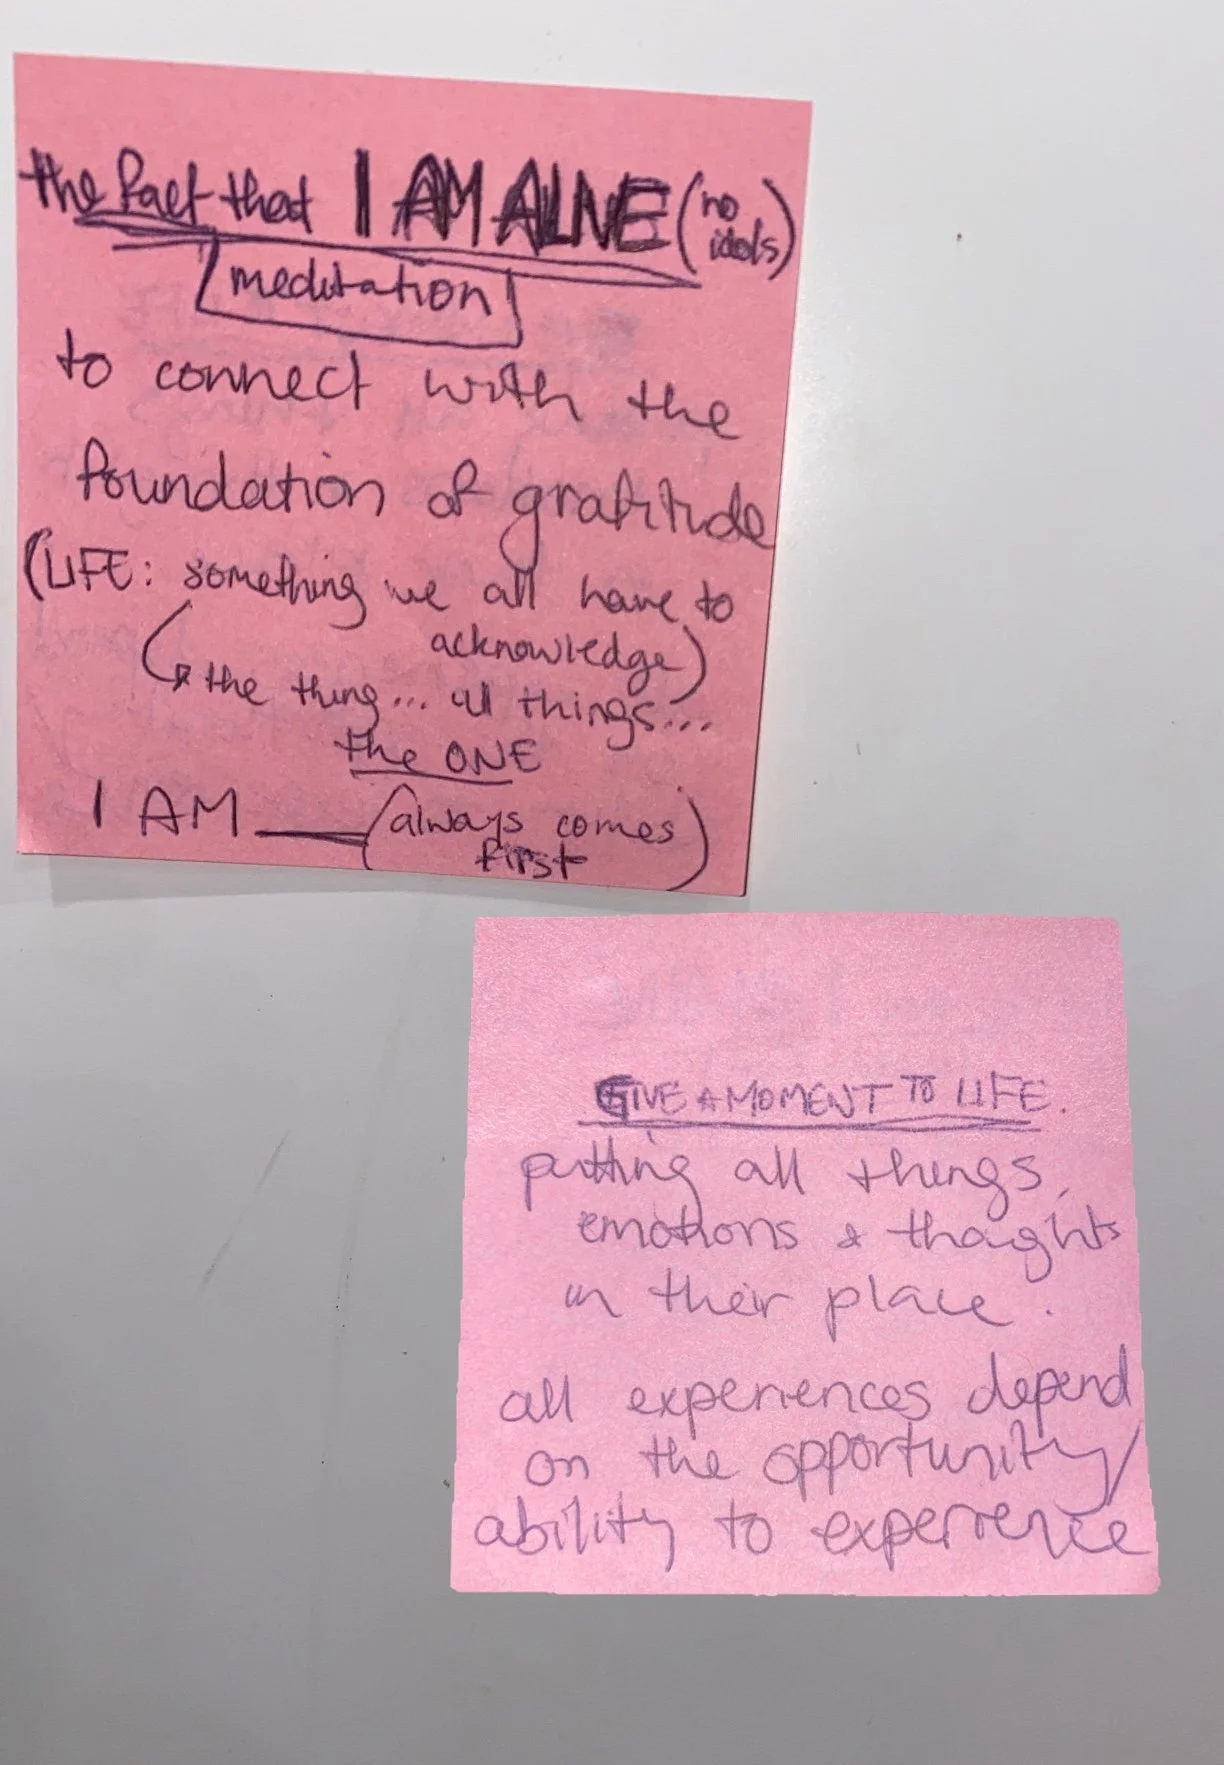 the fact that I AM ALIVE (no idols)
meditation
to connect with the
foundation of gratitude
(LIFE: something we all have to
acknowledge)
the thing... all things...
the ONE
I AM (always comes
first)
GIVE A MOMENT TO LIFE.
putting all things,
emotions & thoughts
in their place.
all experiences depend
on the opportunity/
ability to experience